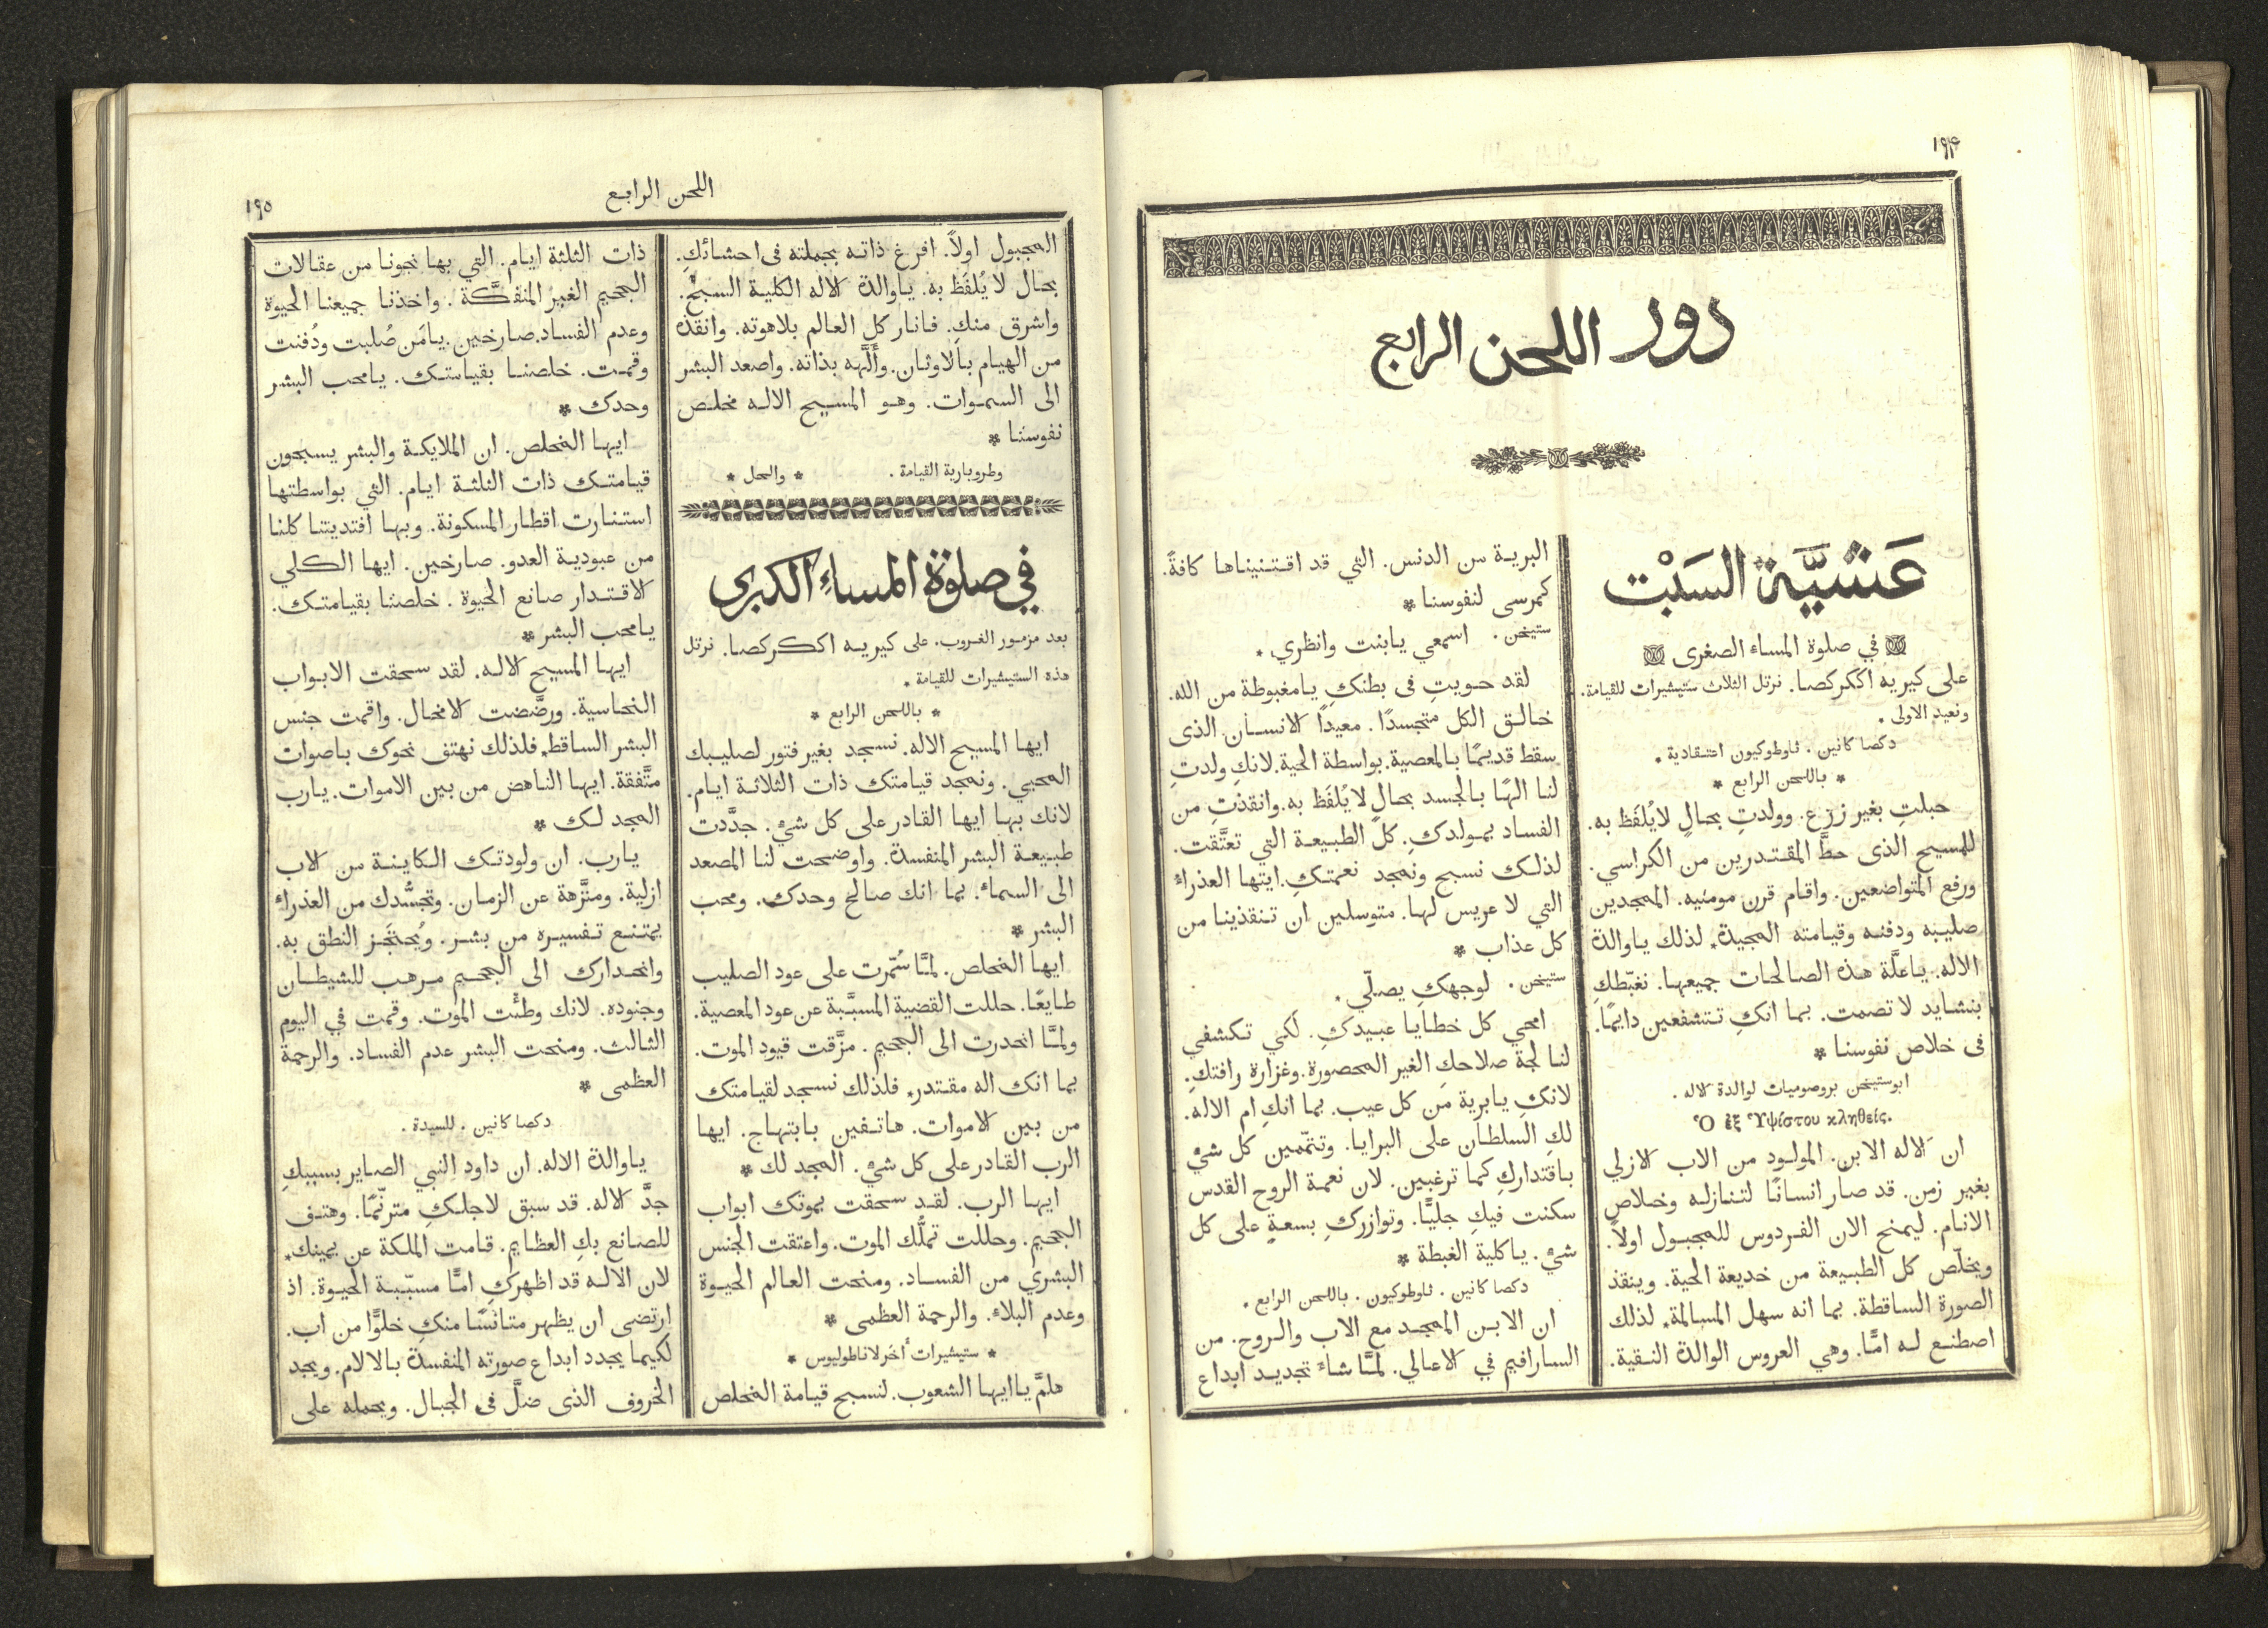 ١٩٤
دور اللحن الرابع
عَشيَّة السَبْت
في صلوة المساء الصغرى
على كيريه اككركصا. نرتل الثلاث ستيشيرات للقيامة.
ونعيد الاولى.
دكصا كانين. ثاوطوكيون اعتقادية.
* باللحن الرابع *
حبلتِ بغير زرع. وولدتِ بحالٍ لايُلفَظ به.
للمسيح الذى حطَّ المقتدرين من الكراسي.
ورفع المتواضعين. واقام قرن مومنيه. الممجدين
صليبه ودفنه وقيامته المجيدة* لذلك ياوالدة
الاله. ياعلَّة هذه الصالحات جميعها. نغبّطكِ
بنشايد لا تصمت. بما انكِ تتشفعين دايمًا.
فى خلاص نفوسنا *
ابوستيخن بروصوميات لوالدة الاله.
Ὁ ἐξ Ὑψίστου κληθείς.
ان الاله الابن. المولود من الاب الازلي
بغير زمن. قد صار انسانًا لتنازله وخلاص
الانام. ليمنح الان الفردوس للمجبول اولاً.
ويخلّص كل الطبيعة من خديعة الحية. وينقذ
الصورة الساقطة. بما انه سهل المسالمة* لذلك
اصطنع له امًّا. وهي العروس الوالدة النقية.
البرية من الدنس. التي قد اقتنيناها كافةً.
كمرسى لنفوسنا *
ستيخن. اسمعي يابنت وانظري.
لقد حويتِ فى بطنكِ يامغبوطة من الله.
خالق الكل متجسدًا. معيدًا الانسان الذى
سقط قديمًا بالمعصية. بواسطة الحية. لانكِ ولدتِ
لنا الهًا بالجسد بحالٍ لايُلفَظ به. وانقذتِ من
الفساد بمولدكِ. كل الطبيعة التي تعتَّقت.
لذلك نسبح ونمجد نعمتكِ. ايتها العذراء
التي لا عريس لها. متوسلين ان تنقذينا من
كل عذاب *
ستيخن. لوجهكِ يصلّي.
امحي كل خطايا عبيدكِ. لكي تكشفي
لنا لجة صلاحكِ الغير المحصورة. وغزارة رافتكِ.
لانكِ يابرية من كل عيب. بما انكِ ام الاله.
لكِ السلطان على البرايا. وتتمّمين كل شيْ
باقتداركِ كما ترغبين. لان نعمة الروح القدس
سكنت فيكِ جليًّا. وتوازركِ بسعةٍ على كل
شيْ. ياكلية الغبطة *
دكصا كانين. ثاوطوكيون. باللحن الرابع.
ان الابن الممجد مع الاب والروح. من
السارافيم في الاعالي. لمَّا شاءَ تجديد ابداع
اللحن الرابع
١٩٥
المجبول اولاً. افرغ ذاته بجملته فى احشائكِ.
بحال لا يُلفَظ به. ياوالدة الاله الكلية السبح.
واشرق منكِ. فانار كل العالم بلاهوته. وانقذه
من الهيام بالاوثان. وألَّهه بذاته. واصعد البشر
الى السموات. وهو المسيح الاله مخلص
نفوسنا *
وطروبارية القيامة. * والحل *
في صلوة المساءِ الكبرى
بعد مزمور الغروب. على كيريه اككركصا. نرتل
هذه الستيشيرات للقيامة.
* باللحن الرابع *
ايها المسيح الاله. نسجد بغير فتور لصليبك
المحيي. ونمجد قيامتك ذات الثلاثة ايام.
لانك بها ايها القادر على كل شيْ. جدَّدت
طبيعة البشر المنفسدة. واوضحت لنا المصعد
الى السماء. بما انك صالح وحدك. ومحب
البشر *
ايها المخلص. لمَّا سُمّرت على عود الصليب
طايعًا. حللت القضية المسبَّبة عن عود المعصية.
ولمَّا انحدرت الى الجحيم. مزَّقت قيود الموت.
بما انك اله مقتدر* فلذلك نسجد لقيامتك
من بين الاموات. هاتفين بابتهاج. ايها
الرب القادر على كل شيْ. المجد لك *
ايها الرب. لقد سحقت بموتك ابواب
الجحيم. وحللت تملُّك الموت. واعتقت الجنس
البشري من الفساد. ومنحت العالم الحيوة
وعدم البلاء. والرحمة العظمى *
* ستيشيرات أخر لاناطوليوس *
هلمَّ ياايها الشعوب. لنسبح قيامة المخلص
ذات الثلثة ايام. التي بها نجونا من عقالات
الجحيم الغير المنفكَّة. واخذنا جميعنا الحيوة
وعدم الفساد. صارخين. يامَن صُلبت ودُفنت
وقمت. خلصنا بقيامتك. يامحب البشر
وحدك *
ايها المخلص. ان الملايكة والبشر يسبحون
قيامتك ذات الثلثة ايام. التي بواسطتها
استنارت اقطار المسكونة. وبها افتديتنا كلنا
من عبودية العدو. صارخين. ايها الكلي
الاقتدار صانع الحيوة. خلصنا بقيامتك.
يامحب البشر *
ايها المسيح الاله. لقد سحقت الابواب
النحاسية. ورضَّضت الامخال. واقمت جنس
البشر الساقط* فلذلك نهتف نحوك باصوات
متَّفقة. ايها الناهض من بين الاموات. يارب
المجد لك *
يارب. ان ولودتك الكاينة من الاب
ازلية. ومنزَّهة عن الزمان. وتجسُّدك من العذراء
يمتنع تفسيره من بشر. ويُحتجَز النطق به.
وانحدارك الى الجحيم مرهب للشيطان
وجنوده. لانك وطئت الموت. وقمت في اليوم
الثالث. ومنحت البشر عدم الفساد. والرحمة
العظمى *
دكصا كانين. للسيدة.
ياوالدة الاله. ان داود النبي الصاير بسببكِ
جدَّ الاله. قد سبق لاجلكِ مترنّمًا. وهتف
للصانع بكِ العظايم. قامت الملكة عن يمينك*
لان الاله قد اظهركِ امًّا مسبّبة الحيوة. اذ
ارتضى ان يظهر متانّسًا منكِ خلوًّا من اب.
لكيما يجدد ابداع صورته المنفسدة بالالام. ويجد
الخروف الذى ضلَّ فى الجبال. ويحمله على